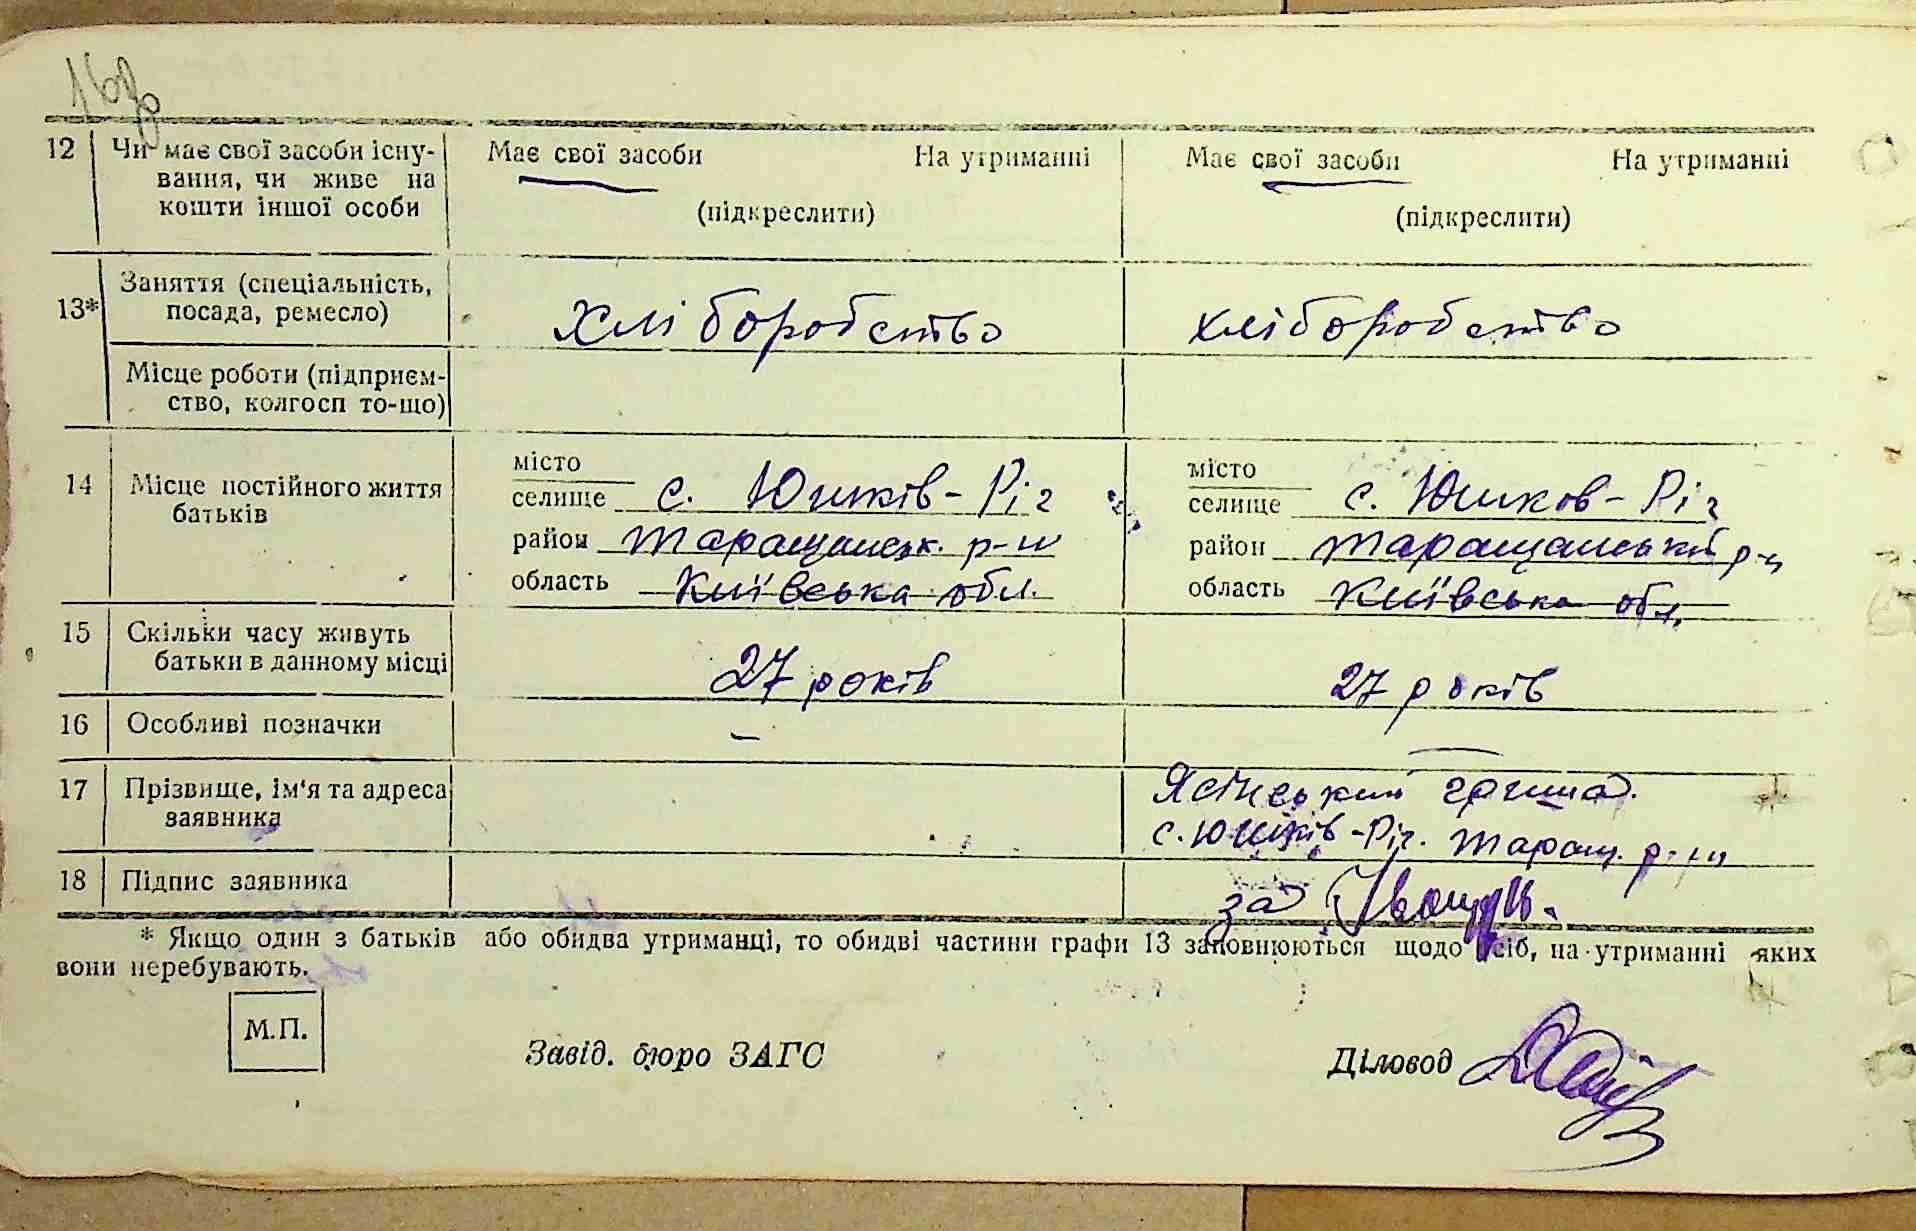 12 Чи має свої засоби існу- Має свої засоби На утриманні Має свої засоби На утриманні
вання, чи живе на
кошти іншої особи (підкреслити) (підкреслити)
13* Заняття (спеціальність,
посада, ремесло) хліборобство хліборобство
Місце роботи (підприєм-
ство, колгосп то-що)
14 Місце постійного життя
батьків
місто місто
селище с. Юшків-Ріг селище с. Юшков-Ріг
район Таращанськ. р-н район Таращанський р-н
область Київська обл. область Київська обл.
15 Скільки часу живуть
батьки в данному місці 27 років 27 років
16 Особливі позначки – —
17 Прізвище, ім'я та адреса Ясінський гриша.
заявника с. Юшків-Ріг. Таращ. р-н
18 Підпис заявника за
* Якщо один з батьків або обидва утриманці, то обидві частини графи 13 заповнюються щодо осіб, на утриманні яких
вони перебувають.
М.П.
Завід. бюро ЗАГС Діловод